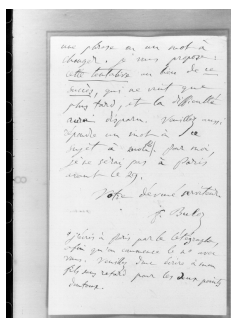 une phrase ou un mot à
changer. je vous propose :
cette tentative au lieu de ce
succès, qui ne vient que
plus tard, et la difficulté
aura disparu. Veuillez aussi
un mot à ce
sujet à
je ne serai pas à Paris
avant le 29.
Votre dévoué serviteur
J'écris à Paris par le télégraphe,
afin qu'on commence le 2e avec
vous. Veuillez donc écrire à mon
fils sans retard pour les deux points
douteux.